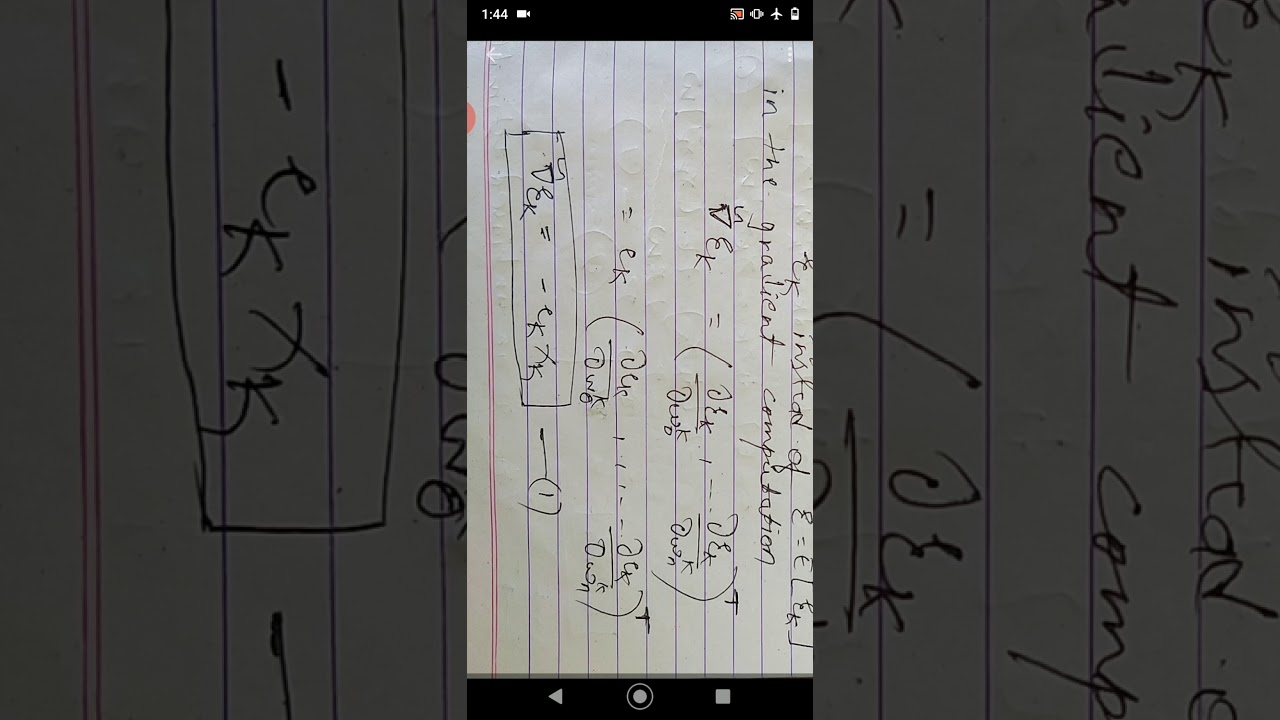 1:44
ξₖ instead of ξ = E[ξₖ]
in the gradient computation
∇̃ξₖ = (∂ξₖ/∂w₀ᵏ, --- ∂ξₖ/∂wₙᵏ)ᵀ
= eₖ (∂eₖ/∂w₀ᵏ, ... ∂eₖ/∂wₙᵏ)ᵀ
∇̃ξₖ = - eₖXₖ — (1)